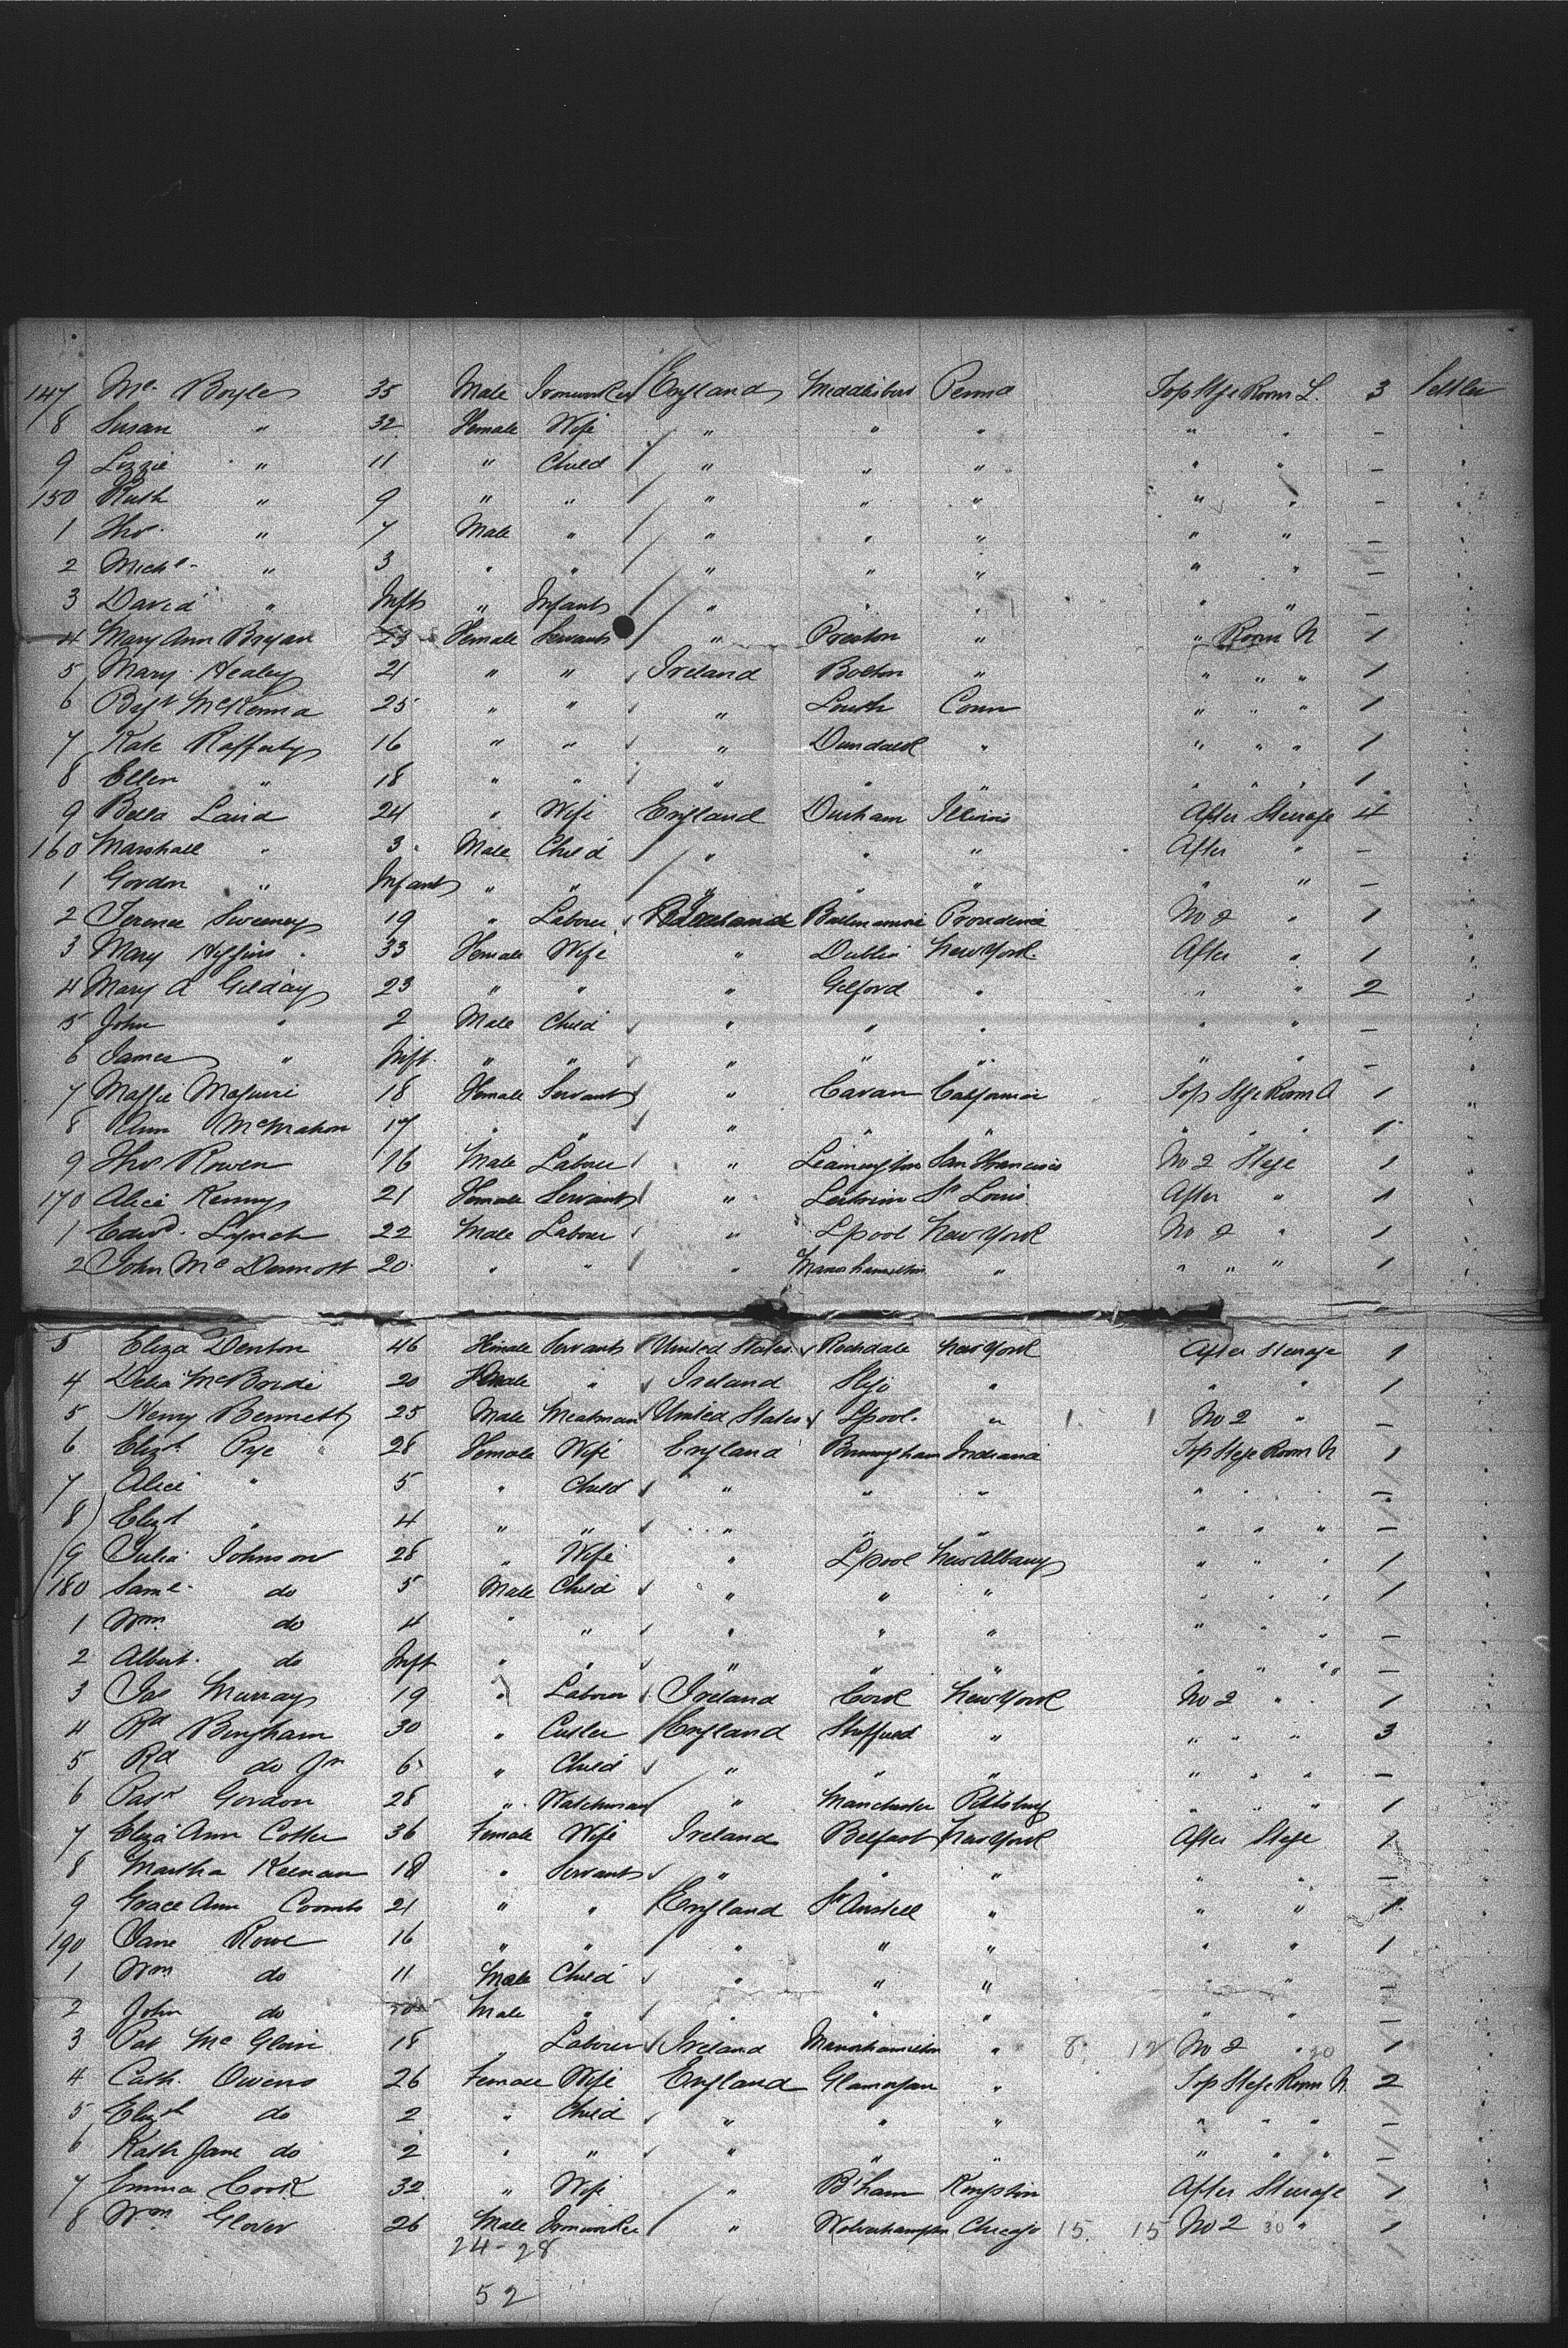 147 Mc Boyle 35 Male Ironworker England Middlesboro Penna Top Stge Room L. 3 Settler
8 Susan " 32 Female Wife " " " " " –
9 Lizzie " 11 " Child " " " " " –
150 Ruth " 9 " " " " " " " –
1 Thos. " 7 Male " " " " " " –
2 Michl. " 3 " " " " " " " –
3 David " Inft " Infant " " " " " –
4 Mary Ann Bryan 23 Female Servant " Preston " " Room N 1
5 Mary Healey 21 " " Ireland Bolton " " " " 1
6 McKenna 25 " " " Louth Conn " " " 1
7 Kate Rafferty 16 " " " Dundalk " " " " 1
8 Ellen " 18 " " " " " " " " 1
9 Bella Laird 24 " Wife England Durham Illinois After Steerage 4
160 Marshall " 3 Male Child " " " After " –
1 Gordon " Infant " " " " " " " –
2 Terence Sweeney 19 " Labourer Ireland Providence No 2 " 1
3 Mary Higgins 33 Female Wife " Dublin New York After " 1
4 Mary A Gilday 23 " " " Gilford " " " 2
5 John " 2 Male Child " " " " " –
6 James " Inft. " " " " " " " –
7 Maggie Maguire 18 Female Servant " Cavan California Top Stge Room A 1
8 Ann McMahon 17 " " " " " " " " 1
9 Thos Rowen 16 Male Labourer " Leamington San Francisco No 2 Stge 1
170 Alice Kenny 21 Female Servant " Leitrim St Louis After " 1
1 Edwd. Lynch 22 Male Labourer " Lpool New York No 2 " 1
2 John McDermott 20 " " " Manorhamilton " " " " 1
3 Eliza Denton 46 Female Servant United States Rochdale New York After Steerage 1
4 Delia McBride 20 Female " Ireland Sligo " " " 1
5 Henry Bennett 25 Male Meatman United States Lpool " 1 1 No 2 " –
6 Elizth Pye 28 Female Wife England Birmingham Indiana Top Stge Room N 1
7 Alice " 5 " Child " " " " " " –
8 Elizth " 4 " " " " " " " " –
9 Julia Johnson 28 " Wife " Lpool New Albany " " " 1
180 Saml. do 5 Male Child " " " " " " 1
1 Wm. do 4 " " " " " " " " –
2 Albert do Inft " " " " " " " " –
3 Jas Murray 19 " Labourer Ireland Cork New York No 2 " 1
4 Rd Bingham 30 " Cutler England Sheffield " " " " 3
5 Rd do Jr 6 " Child " " " " " " –
6 Gordon 28 " Watchman " Manchester Pittsburg " " " 1
7 Eliza Ann Cotter 36 Female Wife Ireland Belfast New York After Stge 1
8 Martha Keenan 18 " Servant " " " " " –
9 Grace Ann Coombs 21 " " England St Austell " " " 1
190 Jane Rowe 16 " " " " " " " 1
1 Wm do 11 Male Child " " " " " –
2 John do Male " " " " " " –
3 Pat McGloin 18 " Labourer Ireland Manorhamilton " 8 12 No 2 " 20 1
4 Cath. Owens 26 Female Wife England Glamorgan " Top Stge Room N. 2
5 Elizth do 2 " Child " " " " " " –
6 Kath Jane do 2 " " " " " " " " –
7 Emma Cook 32 " Wife " B'ham Kingston After Steerage 1
8 Wm Glover 26 Male Ironworker " Wolverhampton Chicago 15 15 No 2 30 " 1
24 - 28
52